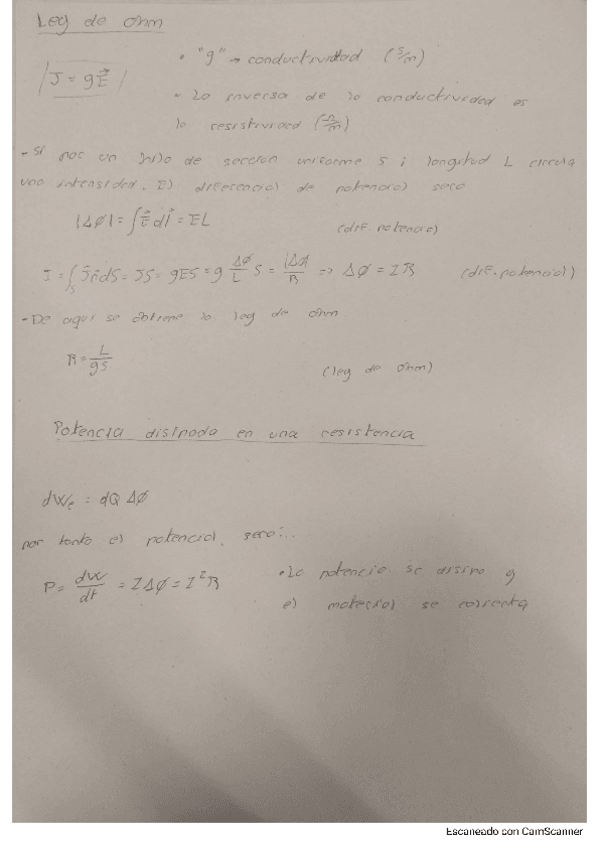 Ley de ohm
J = gE⃗
• "g" → conductividad (S/m)
• La inversa de la conductividad es
la resistividad (Ω/m)
- Si por un hilo de sección uniforme S i longitud L circula
una intensidad, El diferencial de potencial será
|Δφ| = ∫E⃗ dl⃗ = EL (dif. potencial)
I = ∫s J⃗ n̂ dS = JS = gES = g Δφ/L S = |Δφ|/R => Δφ = IR (dif. potencial)
- De aquí se obtiene la ley de ohm
R = L/gS (ley de ohm)
Potencia disipada en una resistencia
dWe = dQ Δφ
por tanto el potencial, será:..
P = dW/dt = IΔφ = I²R
• La potencia se disipa y
el material se calienta
Escaneado con CamScanner